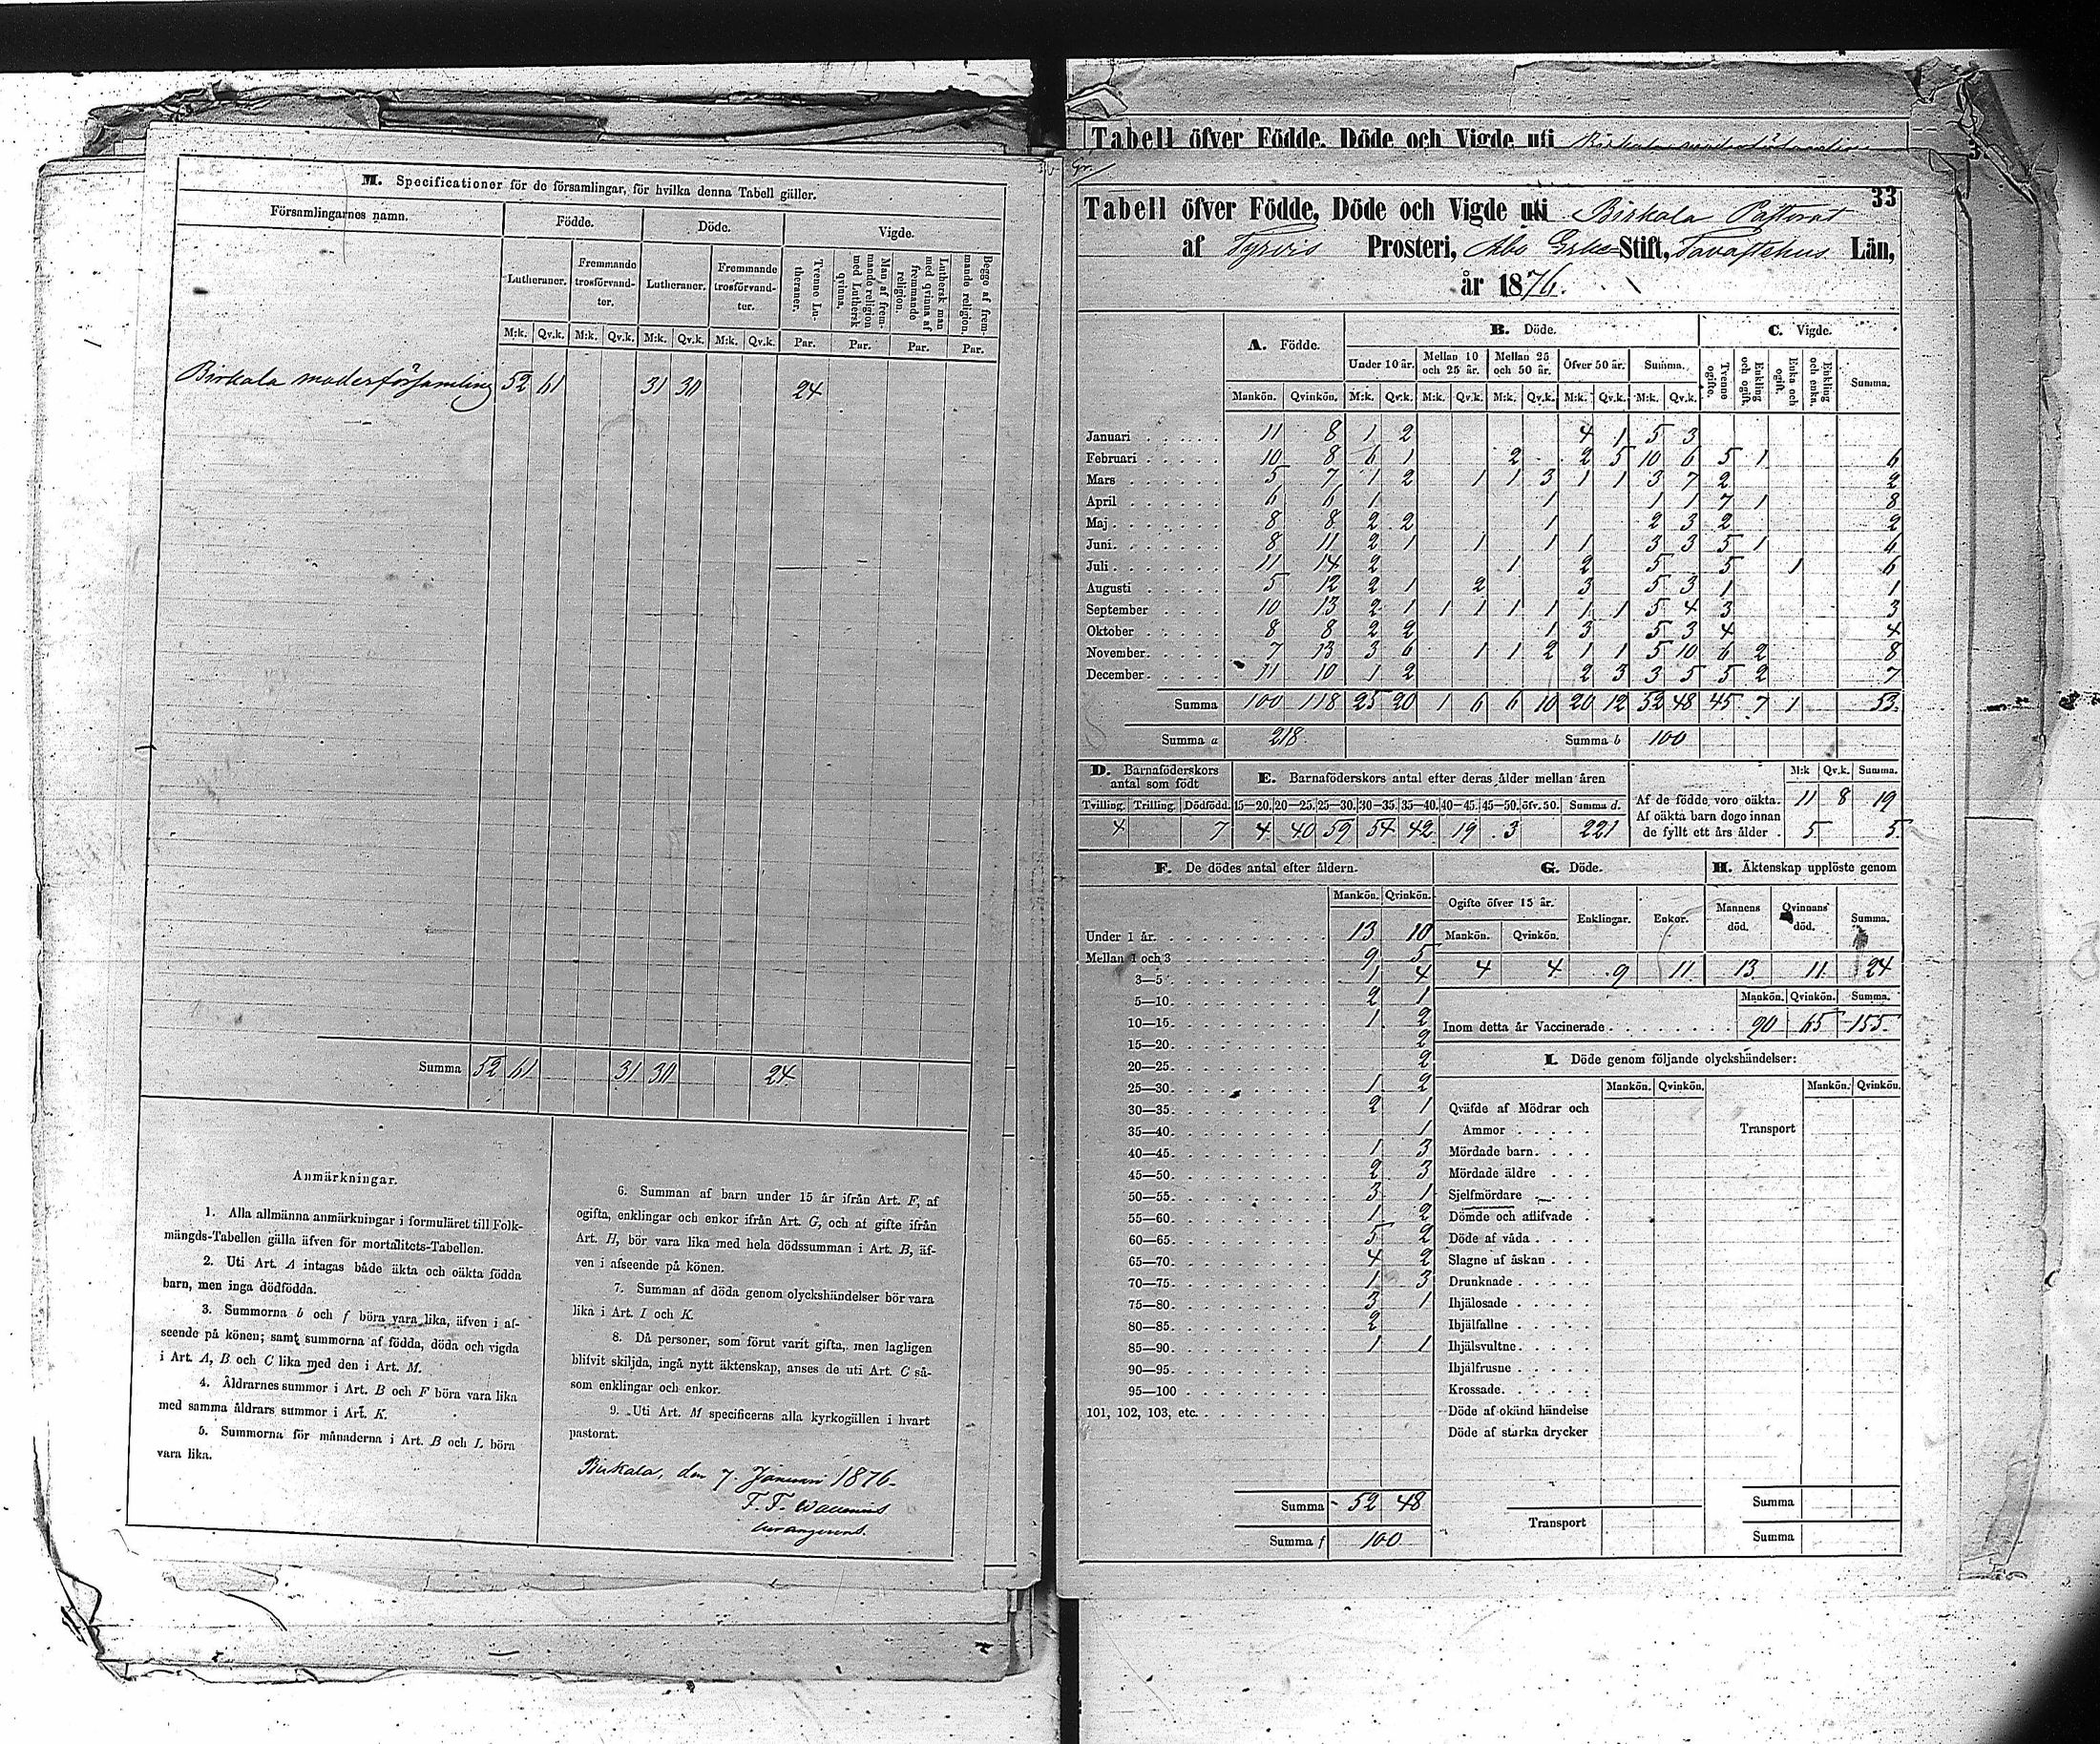 M. Specificationer för de församlingar, för hvilka denna Tabell gäller.
Församlingarnes namn. Födde. Döde. Vigde.
Lutheraner. Fremmande trosförvandter. Lutheraner. Fremmande trosförvandter. Tvenne Lutheraner. Man af fremmande religion med Luthersk qvinna. Luthersk man med qvinna af fremmande religion. Begge af fremmande religion.
M:k. Qv.k. M:k. Qv.k. M:k. Qv.k. M:k. Qv.k. Par. Par. Par. Par.
Birkala moderförsamling 52 61 31 30 24
Summa 52 61 31 30 24
Anmärkningar.
1. Alla allmänna anmärkningar i formuläret till Folk-
mängds-Tabellen gälla äfven för mortalitets-Tabellen.
2. Uti Art. A intagas både äkta och oäkta födda
barn, men inga dödfödda.
3. Summorna b och f böra vara lika, äfven i af-
seende på könen; samt summorna af födda, döda och vigda
i Art. A, B och C lika med den i Art. M.
4. Åldrarnes summor i Art. B och F böra vara lika
med samma åldrars summor i Art. K.
5. Summorna för månaderna i Art. B och L böra
vara lika.
6. Summan af barn under 15 år ifrån Art. F, af
ogifta, enklingar och enkor ifrån Art. G, och af gifte ifrån
Art. H, bör vara lika med hela dödssumman i Art. B, äf-
ven i afseende på könen.
7. Summan af döda genom olyckshändelser bör vara
lika i Art. I och K.
8. Då personer, som förut varit gifta, men lagligen
blifvit skiljda, ingå nytt äktenskap, anses de uti Art. C så-
som enklingar och enkor.
9. Uti Art. M specificeras alla kyrkogällen i hvart
pastorat.
Birkala, den 7. Januari 1876.
F. F. Wallenius
Tabell öfver Födde, Döde och Vigde uti Birkala moderförsamling
33
Tabell öfver Födde, Döde och Vigde uti Birkala Pastorat
af Tyrvis Prosteri, Åbo Erke Stift, Tavastehus Län,
år 1876.
A. Födde. B. Döde. C. Vigde.
Under 10 år. Mellan 10 och 25 år. Mellan 25 och 50 år. Öfver 50 år. Summa. Tvenne ogifte. Enkling och ogift. Enka och ogift. Enkling och enka. Summa.
Mankön. Qvinkön. M:k. Qv:k. M:k. Qv.k. M:k. Qv.k. M:k. Qv.k. M:k. Qv.k.
Januari 11 8 1 2 4 1 5 3
Februari 10 8 6 1 2 2 5 10 6 5 1 6
Mars 5 7 1 2 1 1 3 1 1 3 7 2 2
April 6 6 1 1 1 1 7 1 8
Maj 8 8 2 2 1 2 3 2 2
Juni 8 11 2 1 1 1 1 3 3 5 1 6
Juli 11 14 2 1 2 5 5 1 6
Augusti 5 12 2 1 2 3 5 3 1 1
September 10 13 2 1 1 1 1 1 1 1 5 4 3 3
Oktober 8 8 2 2 1 3 5 3 4 4
November 7 13 3 6 1 1 2 1 1 5 10 6 2 8
December 11 10 1 2 2 3 3 5 5 2 7
Summa 100 118 25 20 1 6 6 10 20 12 52 48 45 7 1 53.
Summa a 218 Summa b 100
D. Barnaföderskors antal som födt
E. Barnaföderskors antal efter deras ålder mellan åren
M:k Qv.k. Summa.
Tvilling. Trilling. Dödfödd. 15—20. 20—25. 25—30. 30—35. 35—40. 40—45. 45—50. öfv. 50. Summa d.
4 7 4 40 59 54 42 19 3 221
Af de födde voro oäkta. 11 8 19
Af oäkta barn dogo innan
de fyllt ett års ålder . 5 5
F. De dödes antal efter åldern.
Mankön. Qvinkön.
Under 1 år. 13 10
Mellan 1 och 3 9 5
3—5 1 4
5—10. 2 1
10—15. 1 2
15—20. 2
20—25. 2
25—30. 1 2
30—35. 2 1
35—40. 1
40—45. 1 3
45—50. 2 3
50—55. 3 1
55—60. 1 2
60—65. 5 2
65—70. 4 2
70—75. 1 3
75—80. 3 1
80—85. 2
85—90. 1 1
90—95.
95—100
101, 102, 103, etc.
Summa 52 48
Summa f 100
G. Döde.
Ogifte öfver 15 år. Enklingar. Enkor.
Mankön. Qvinkön.
4 4 9 11
H. Äktenskap upplöste genom
Mannens död. Qvinnans död. Summa.
13 11 24
Mankön. Qvinkön. Summa.
Inom detta år Vaccinerade 90 65 155
I. Döde genom följande olyckshändelser:
Mankön. Qvinkön. Mankön. Qvinkön.
Qväfde af Mödrar och
Ammor
Mördade barn.
Mördade äldre
Sjelfmördare
Dömde och aflifvade
Döde af våda
Slagne af åskan
Drunknade
Ihjälosade
Ihjälfallne
Ihjälsvultne.
Ihjälfrusne
Krossade.
Döde af okänd händelse
Döde af starka drycker
Transport
Transport
Summa
Summa